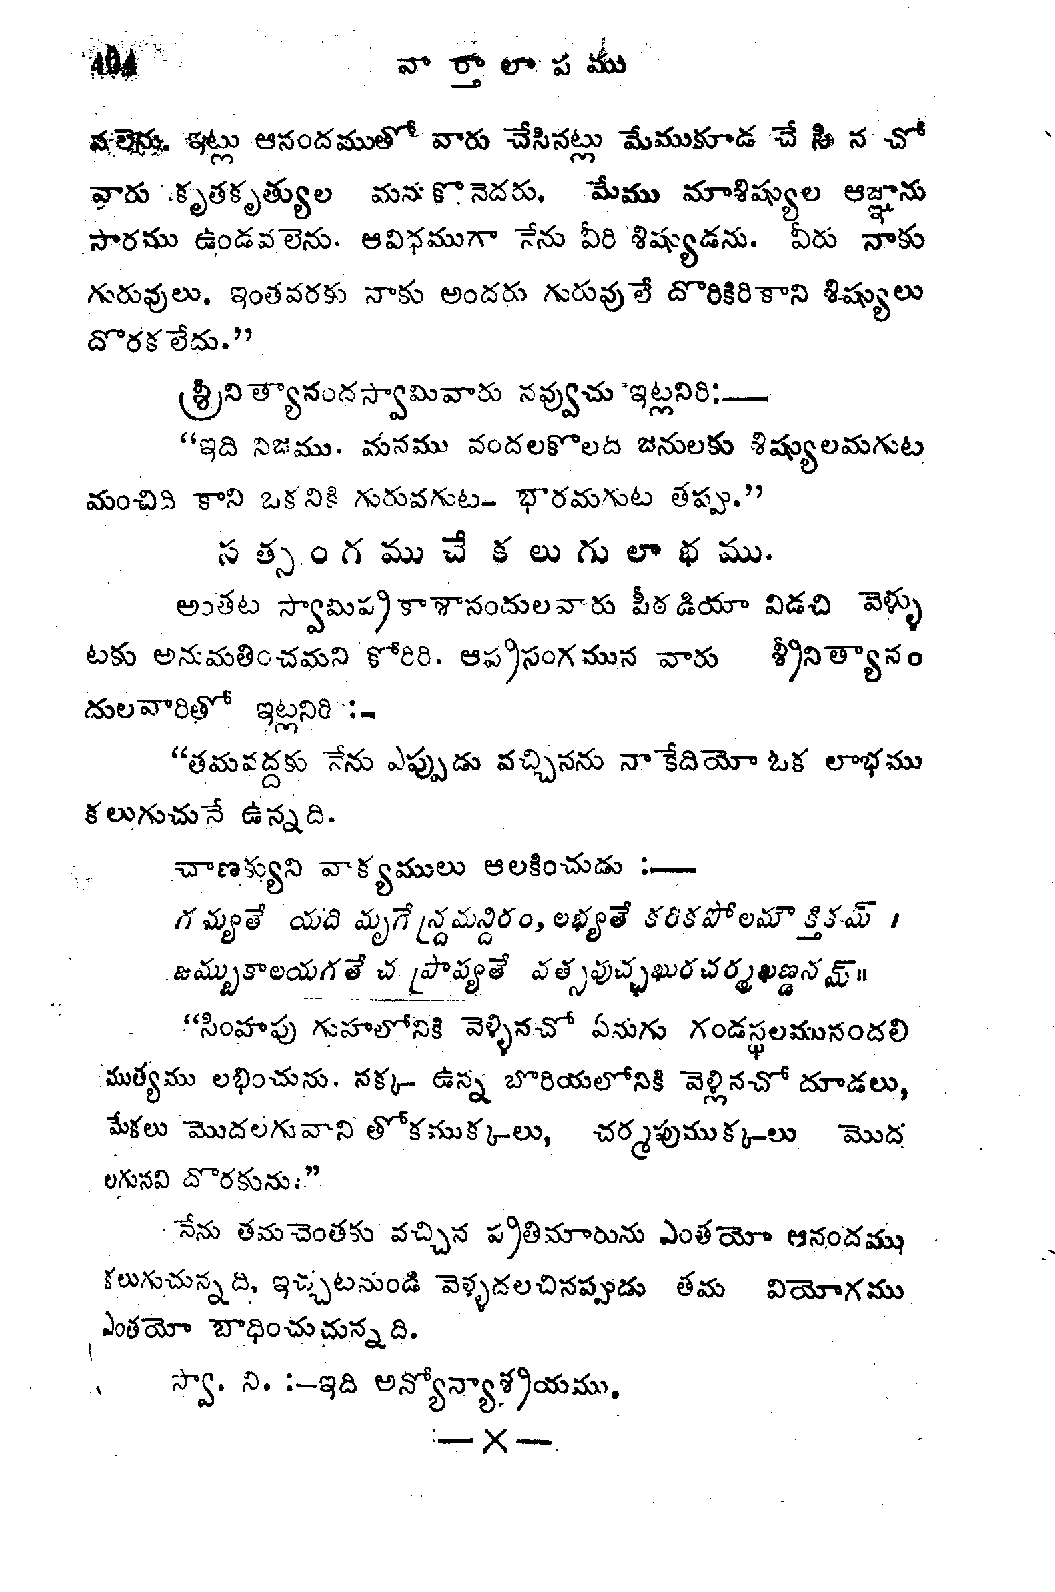 404 వార్తాలాపము
వలెను. ఇట్లు ఆనందముతో వారు చేసినట్లు మేముకూడ చేసినచో
వారు కృతకృత్యుల మనుకొనెదరు. మేము మాశిష్యుల ఆజ్ఞాను
సారము ఉండవలెను. ఆవిధముగా నేను వీరి శిష్యుడను. వీరు నాకు
గురువులు. ఇంతవరకు నాకు అందరు గురువులే దొరికిరికాని శిష్యులు
దొరకలేదు.”
శ్రీనిత్యానందస్వామివారు నవ్వుచు ఇట్లనిరి:—
“ఇది నిజము. మనము వందలకొలది జనులకు శిష్యులమగుట
మంచిది కాని ఒకనికి గురువగుట- భారమగుట తప్పు.”
సత్సంగముచే కలుగు లాభము.
అంతట స్వామిప్రకాశానందులవారు పీఠడియా విడచి వెళ్ళు
టకు అనుమతించమని కోరిరి. ఆప్రసంగమున వారు శ్రీనిత్యానం
దులవారితో ఇట్లనిరి :-
“తమవద్దకు నేను ఎప్పుడు వచ్చినను నాకేదియో ఓక లాభము
కలుగుచునే ఉన్నది.
చాణక్యుని వాక్యములు ఆలకించుడు :—
గమ్యతే యది మృగేన్ద్రమన్దిరం, లభ్యతే కరికపోలమౌక్తికమ్ ।
జమ్బుకాలయగతే చ ప్రాప్యతే వత్సపుచ్ఛఖురచర్మఖణ్డనమ్॥
“సింహపు గుహలోనికి వెళ్ళినచో ఏనుగు గండస్థలమునందలి
ముత్యము లభించును. నక్క ఉన్న బొరియలోనికి వెళ్లినచో దూడలు,
మేకలు మొదలగువాని తోకముక్కలు, చర్మపుముక్కలు మొద
లగునవి దొరకును.”
నేను తమచెంతకు వచ్చిన ప్రతిమారును ఎంతయో ఆనందము
కలుగుచున్నది. ఇచ్చటనుండి వెళ్ళదలచినప్పుడు తమ వియోగము
ఎంతయో బాధించుచున్నది.
స్వా. ని. :—ఇది అన్యోన్యాశ్రయము.
—X—